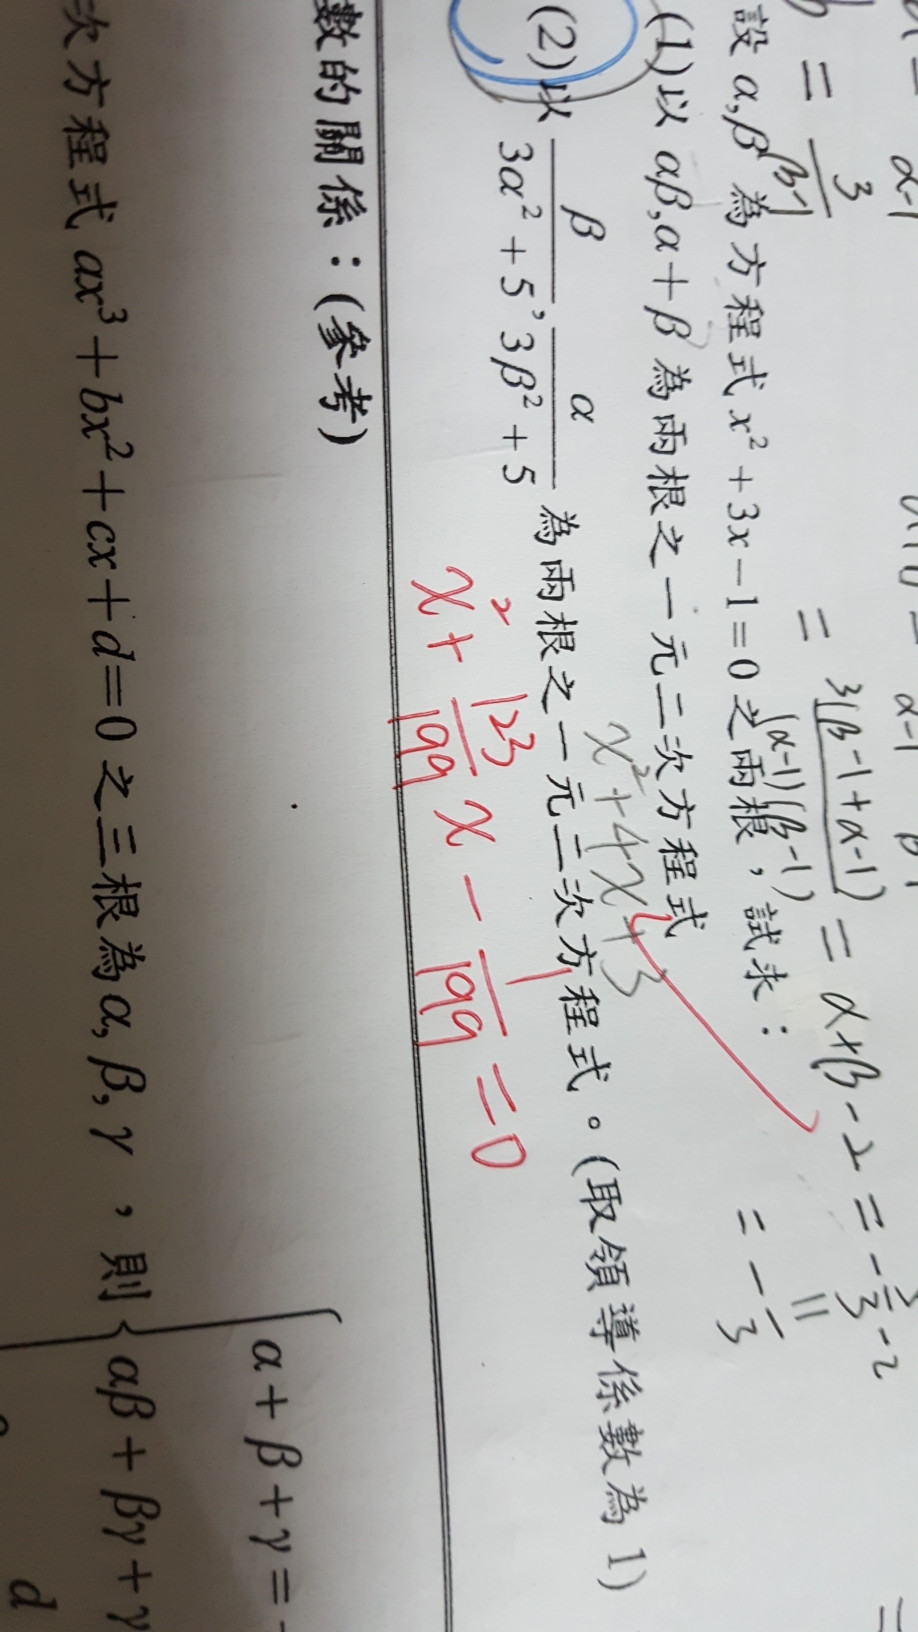 = α-1
= 3/(β-1)
= 3(β-1+α-1)/((α-1)(β-1)) = α+β-2 = -3-2
= -
設 α,β 為方程式 x²+3x-1=0 之兩根，試求：
(1)以 αβ,α+β 為兩根之一元二次方程式
x²+4x+3
(2)以 β/(3α²+5), α/(3β²+5) 為兩根之一元二次方程式。(取領導係數為 1)
x²+123/199x-1/199=0
數的關係：(參考)
次方程式 ax³+bx²+cx+d=0 之三根為 α, β, γ ，則
α+β+γ=-
αβ+βγ+γ
d